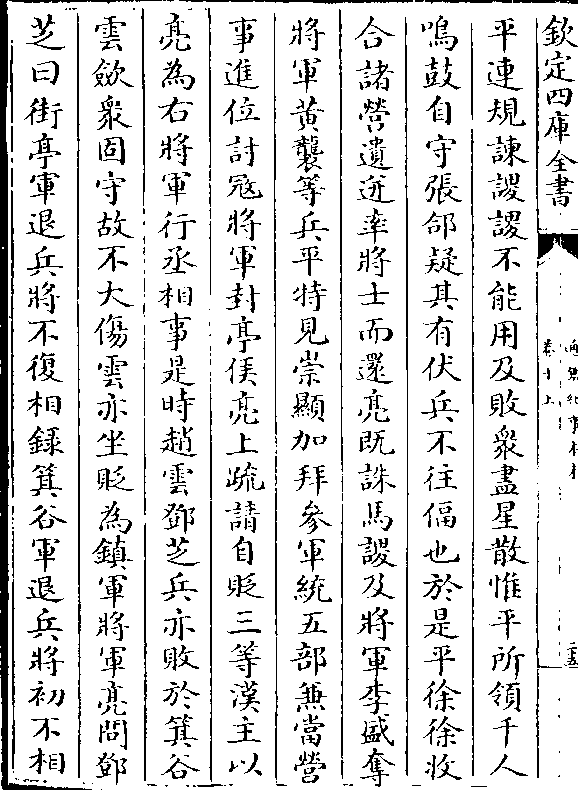 欽定四庫全書
卷十上
平連規諫謖謖不能用及敗衆盡星散惟平所領千人
鳴鼓自守張郃疑其有伏兵不往偪也於是平徐徐收
合諸營遺迸率將士而還亮既誅馬謖及將軍李盛奪
將軍黄襲等兵平特見崇顯加拜參軍統五部兼當營
事進位討寇將軍封亭侯亮上疏請自貶三等漢主以
亮為右將軍行丞相事是時趙雲鄧芝兵亦敗於箕谷
雲斂衆固守故不大傷雲亦坐貶為鎮軍將軍亮問鄧
芝曰街亭軍退兵將不復相録箕谷軍退兵將初不相